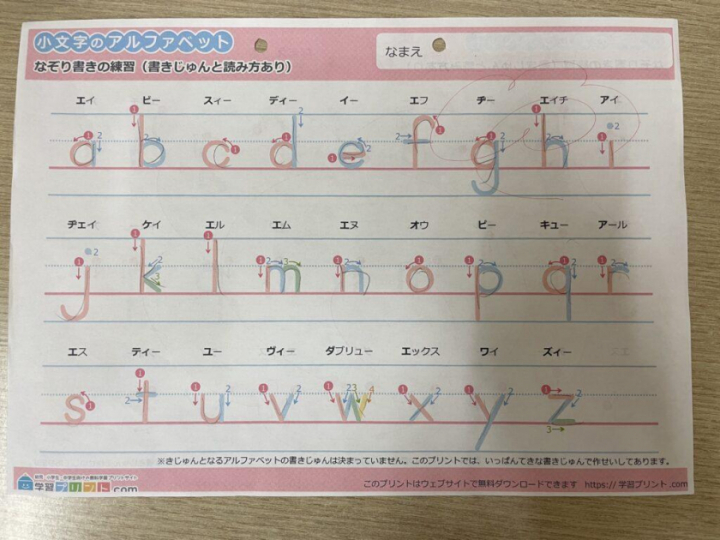 小文字のアルファベット
なぞり書きの練習（書きじゅんと読み方あり）
なまえ
エイ ビー スィー ディー イー エフ ヂー エイチ アイ
a b c d e f g h i
ヂェイ ケイ エル エム エヌ オウ ピー キュー アール
j k l m n o p q r
エス ティー ユー ヴィー ダブリュー エックス ワイ ズィー
s t u v w x y z
※きじゅんとなるアルファベットの書きじゅんは決まっていません。このプリントでは、いっぱんてきな書きじゅんで作せいしてあります。
学習プリント.com
このプリントはウェブサイトで無料ダウンロードできます https://学習プリント.com